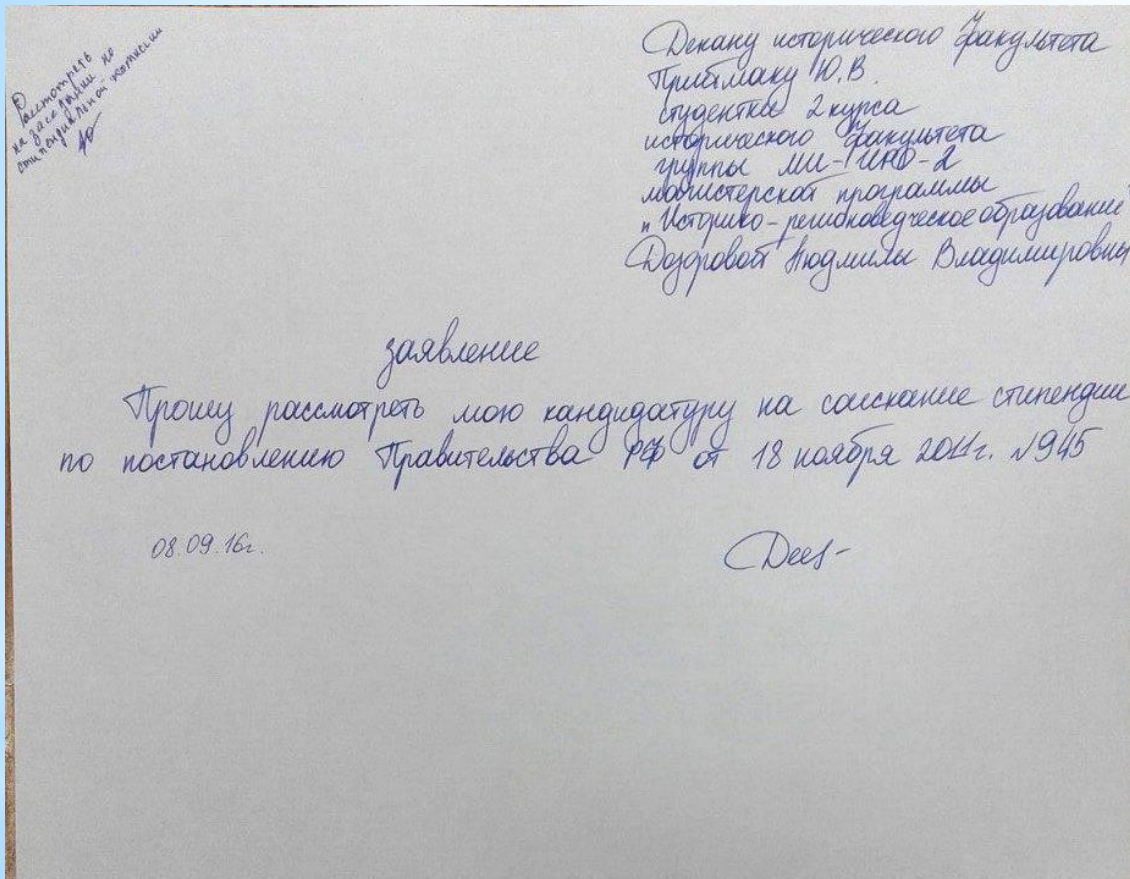 Рассмотреть
на заседании
стипендиальной комиссии
Декану исторического факультета
Приймаку Ю.В.
студентки 2 курса
исторического факультета
группы
магистерской программы
„Историко-регионоведческое образование"
Дозоровой Людмилы Владимировны
заявление
Прошу рассмотреть мою кандидатуру на соискание стипендии
по постановлению Правительства РФ от 18 ноября 2011г. №945
08.09.16г.